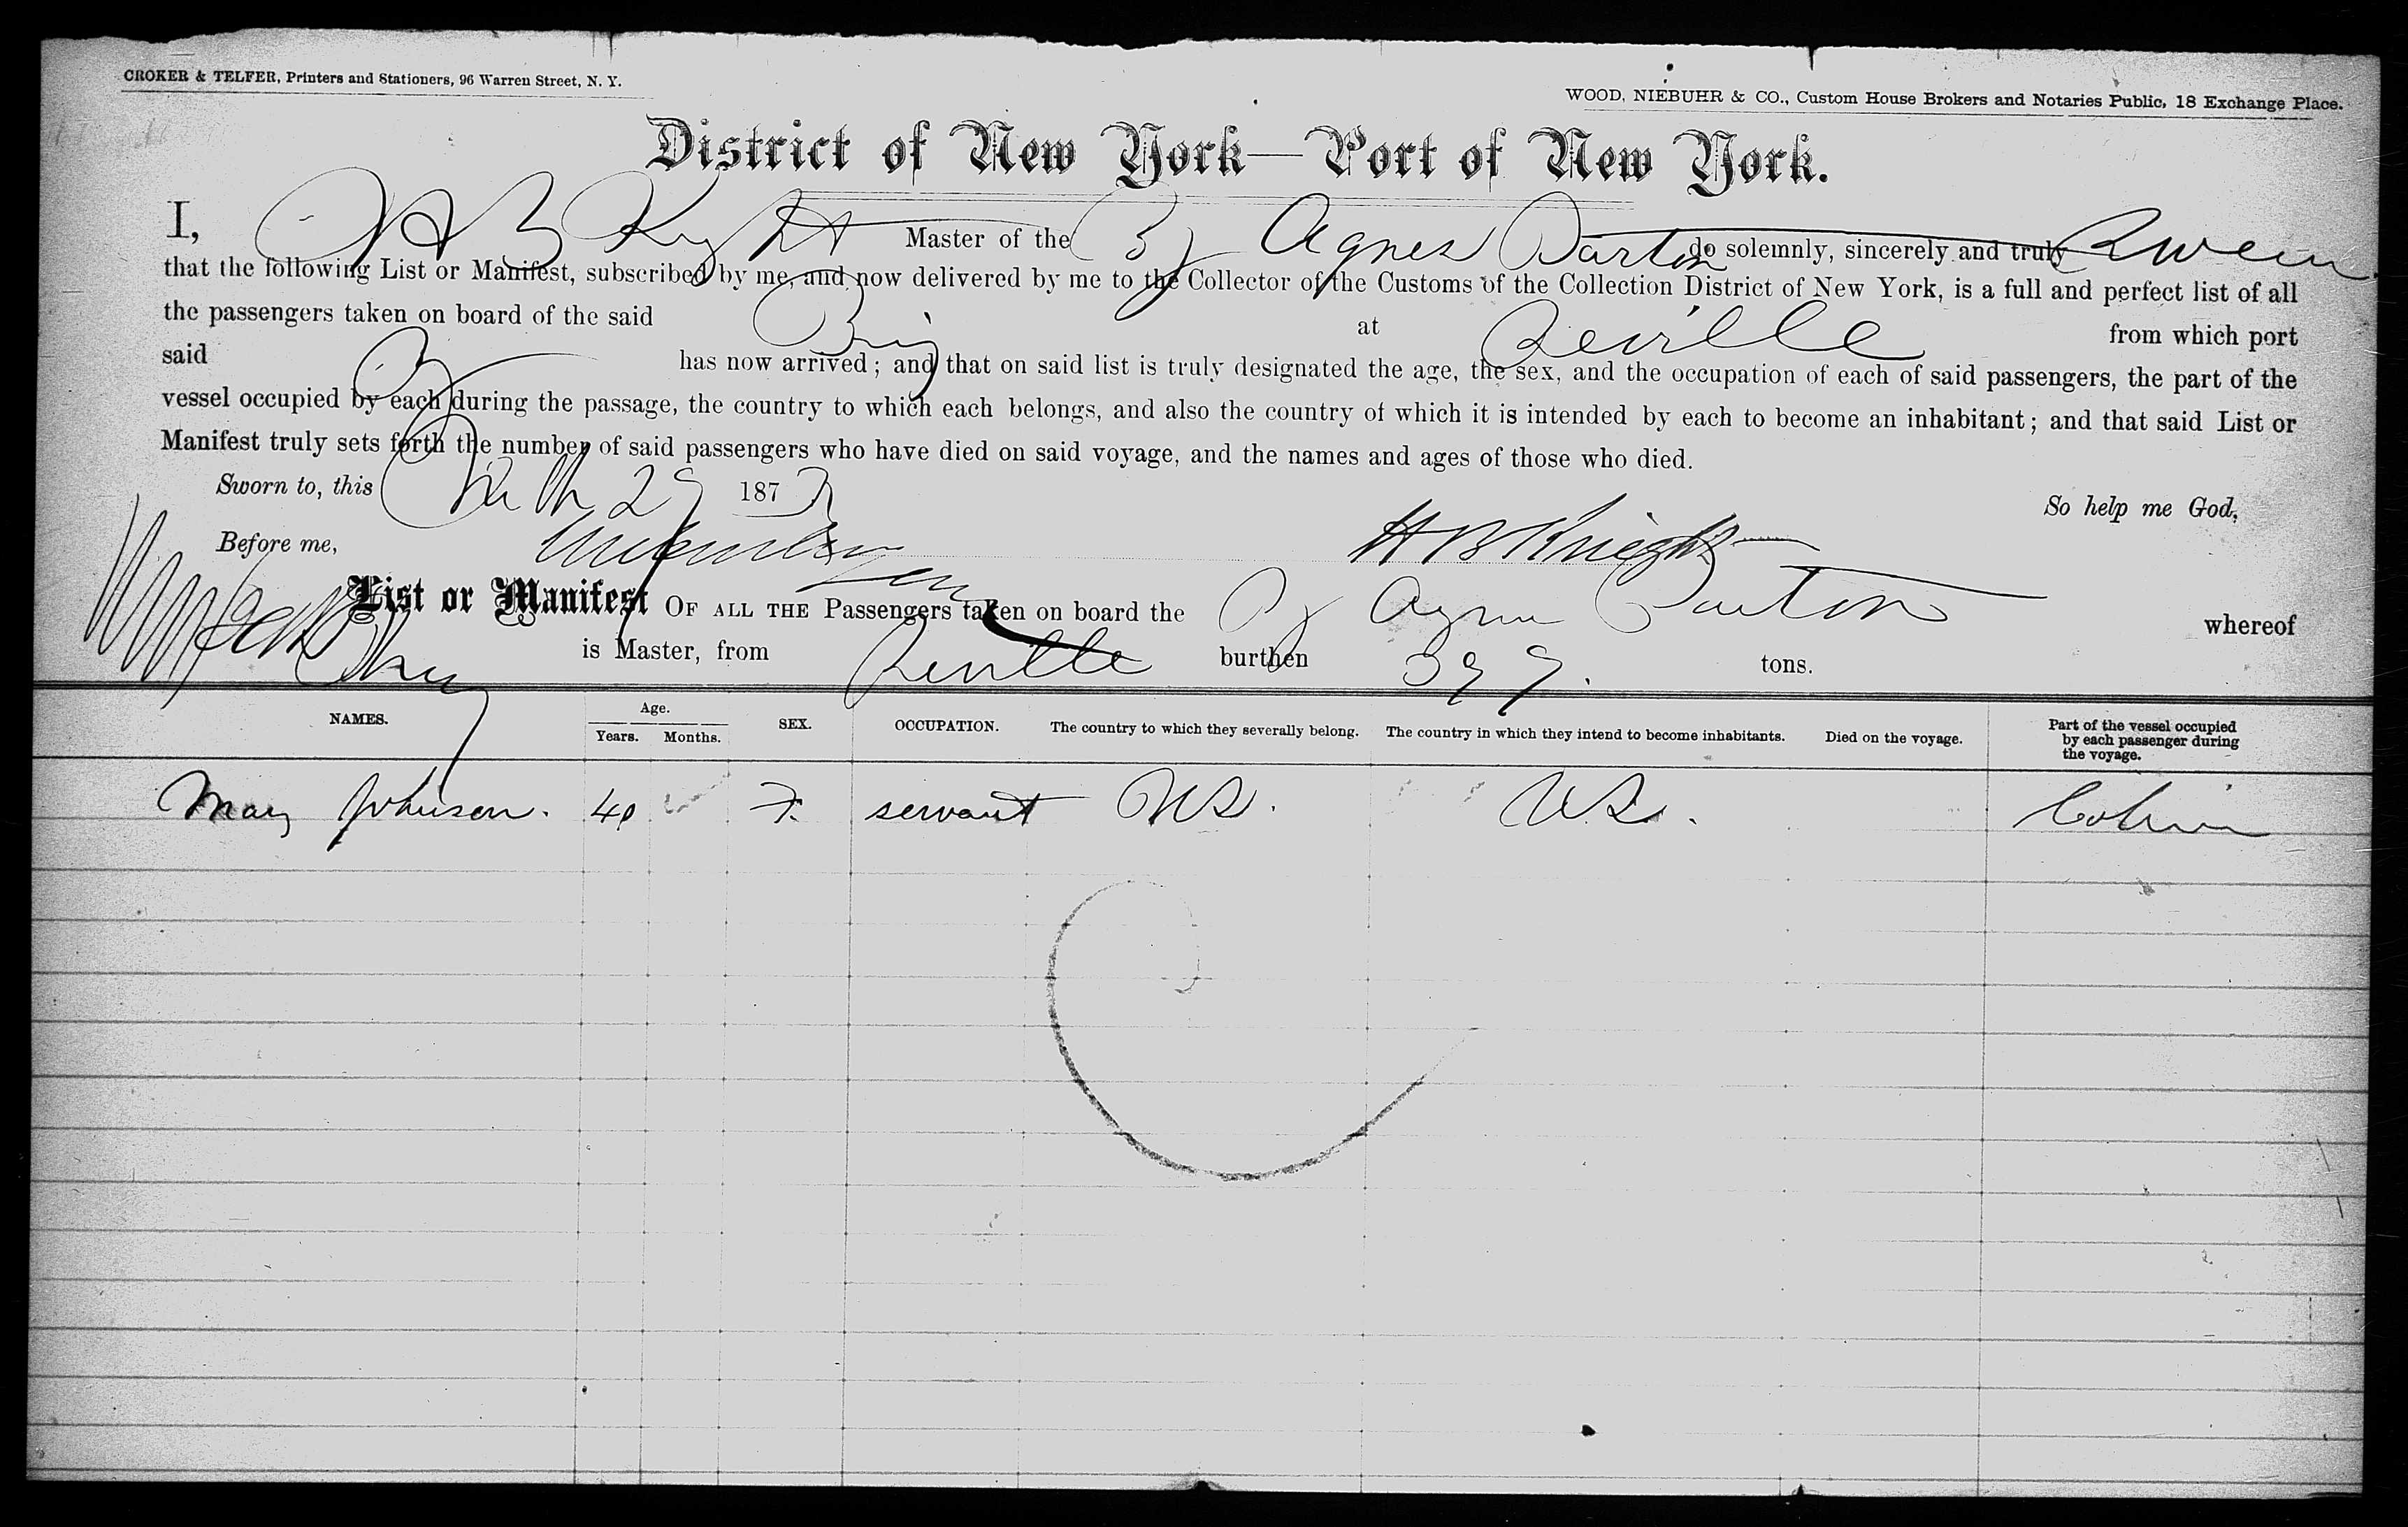 CROKER & TELFER, Printers and Stationers, 96 Warren Street, N. Y.
WOOD, NIEBUHR & CO., Custom House Brokers and Notaries Public, 18 Exchange Place.
District of New York—Port of New York.
I, H B Knight Master of the Bg Agnes Barton do solemnly, sincerely and truly Swear
that the following List or Manifest, subscribed by me, and now delivered by me to the Collector of the Customs of the Collection District of New York, is a full and perfect list of all
the passengers taken on board of the said Brig at Seville from which port
said B has now arrived; and that on said list is truly designated the age, the sex, and the occupation of each of said passengers, the part of the
vessel occupied by each during the passage, the country to which each belongs, and also the country of which it is intended by each to become an inhabitant; and that said List or
Manifest truly sets forth the number of said passengers who have died on said voyage, and the names and ages of those who died.
Sworn to, this 29 187 So help me God,
Before me, H B Knight
List or Manifest OF ALL THE Passengers taken on board the Bg Agnes Barton whereof
is Master, from Seville burthen 399. tons.
NAMES. Age. Years. Months. SEX. OCCUPATION. The country to which they severally belong. The country in which they intend to become inhabitants. Died on the voyage. Part of the vessel occupied by each passenger during the voyage.
Mary Johnson. 40 F. servant US. U.S. Cabin